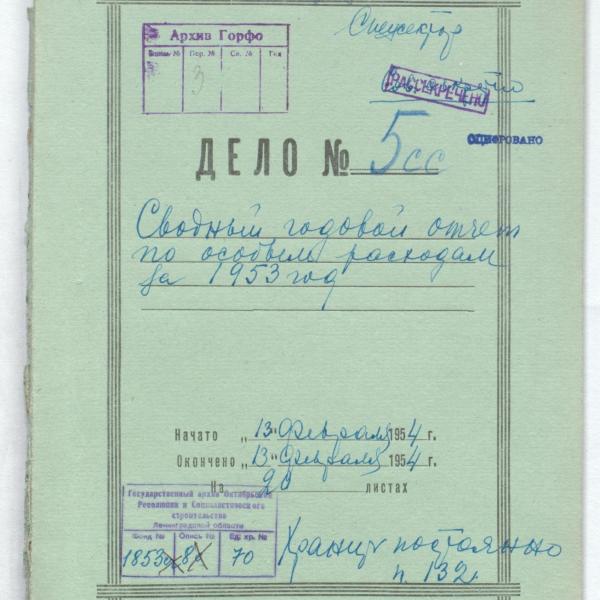 Архив Горфо
Пор. № Св. № Год
3
Спецсектор
РАССЕКРЕЧЕНО
ОЦИФРОВАНО
ДЕЛО № 5сс
Сводный годовой отчет
по особым расходам
за 1953 год
Начато „13" февраля 1954 г.
Окончено „13" февраля 1954 г.
На 20 листах
Государственный архив Октябрьской
Революции и Социалистического
строительства
Ленинградской области
Фонд № Опись № Ед. хр. №
1853 8 70
Хранить постоянно
п. 132.